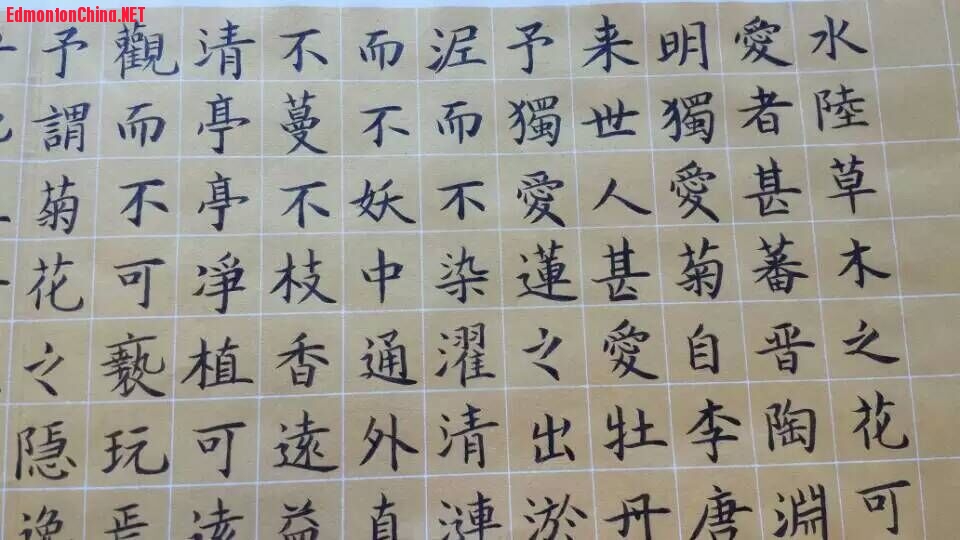 EdmontonChina.NET
水陸草木之花可
愛者甚蕃晋陶淵
明獨愛菊自李唐
来世人甚愛牡丹
予獨愛蓮之出淤
泥而不染濯清漣
而不妖中通外直
不蔓不枝香遠益
清亭亭凈植可遠
觀而不可褻玩焉
予謂菊花之隐逸